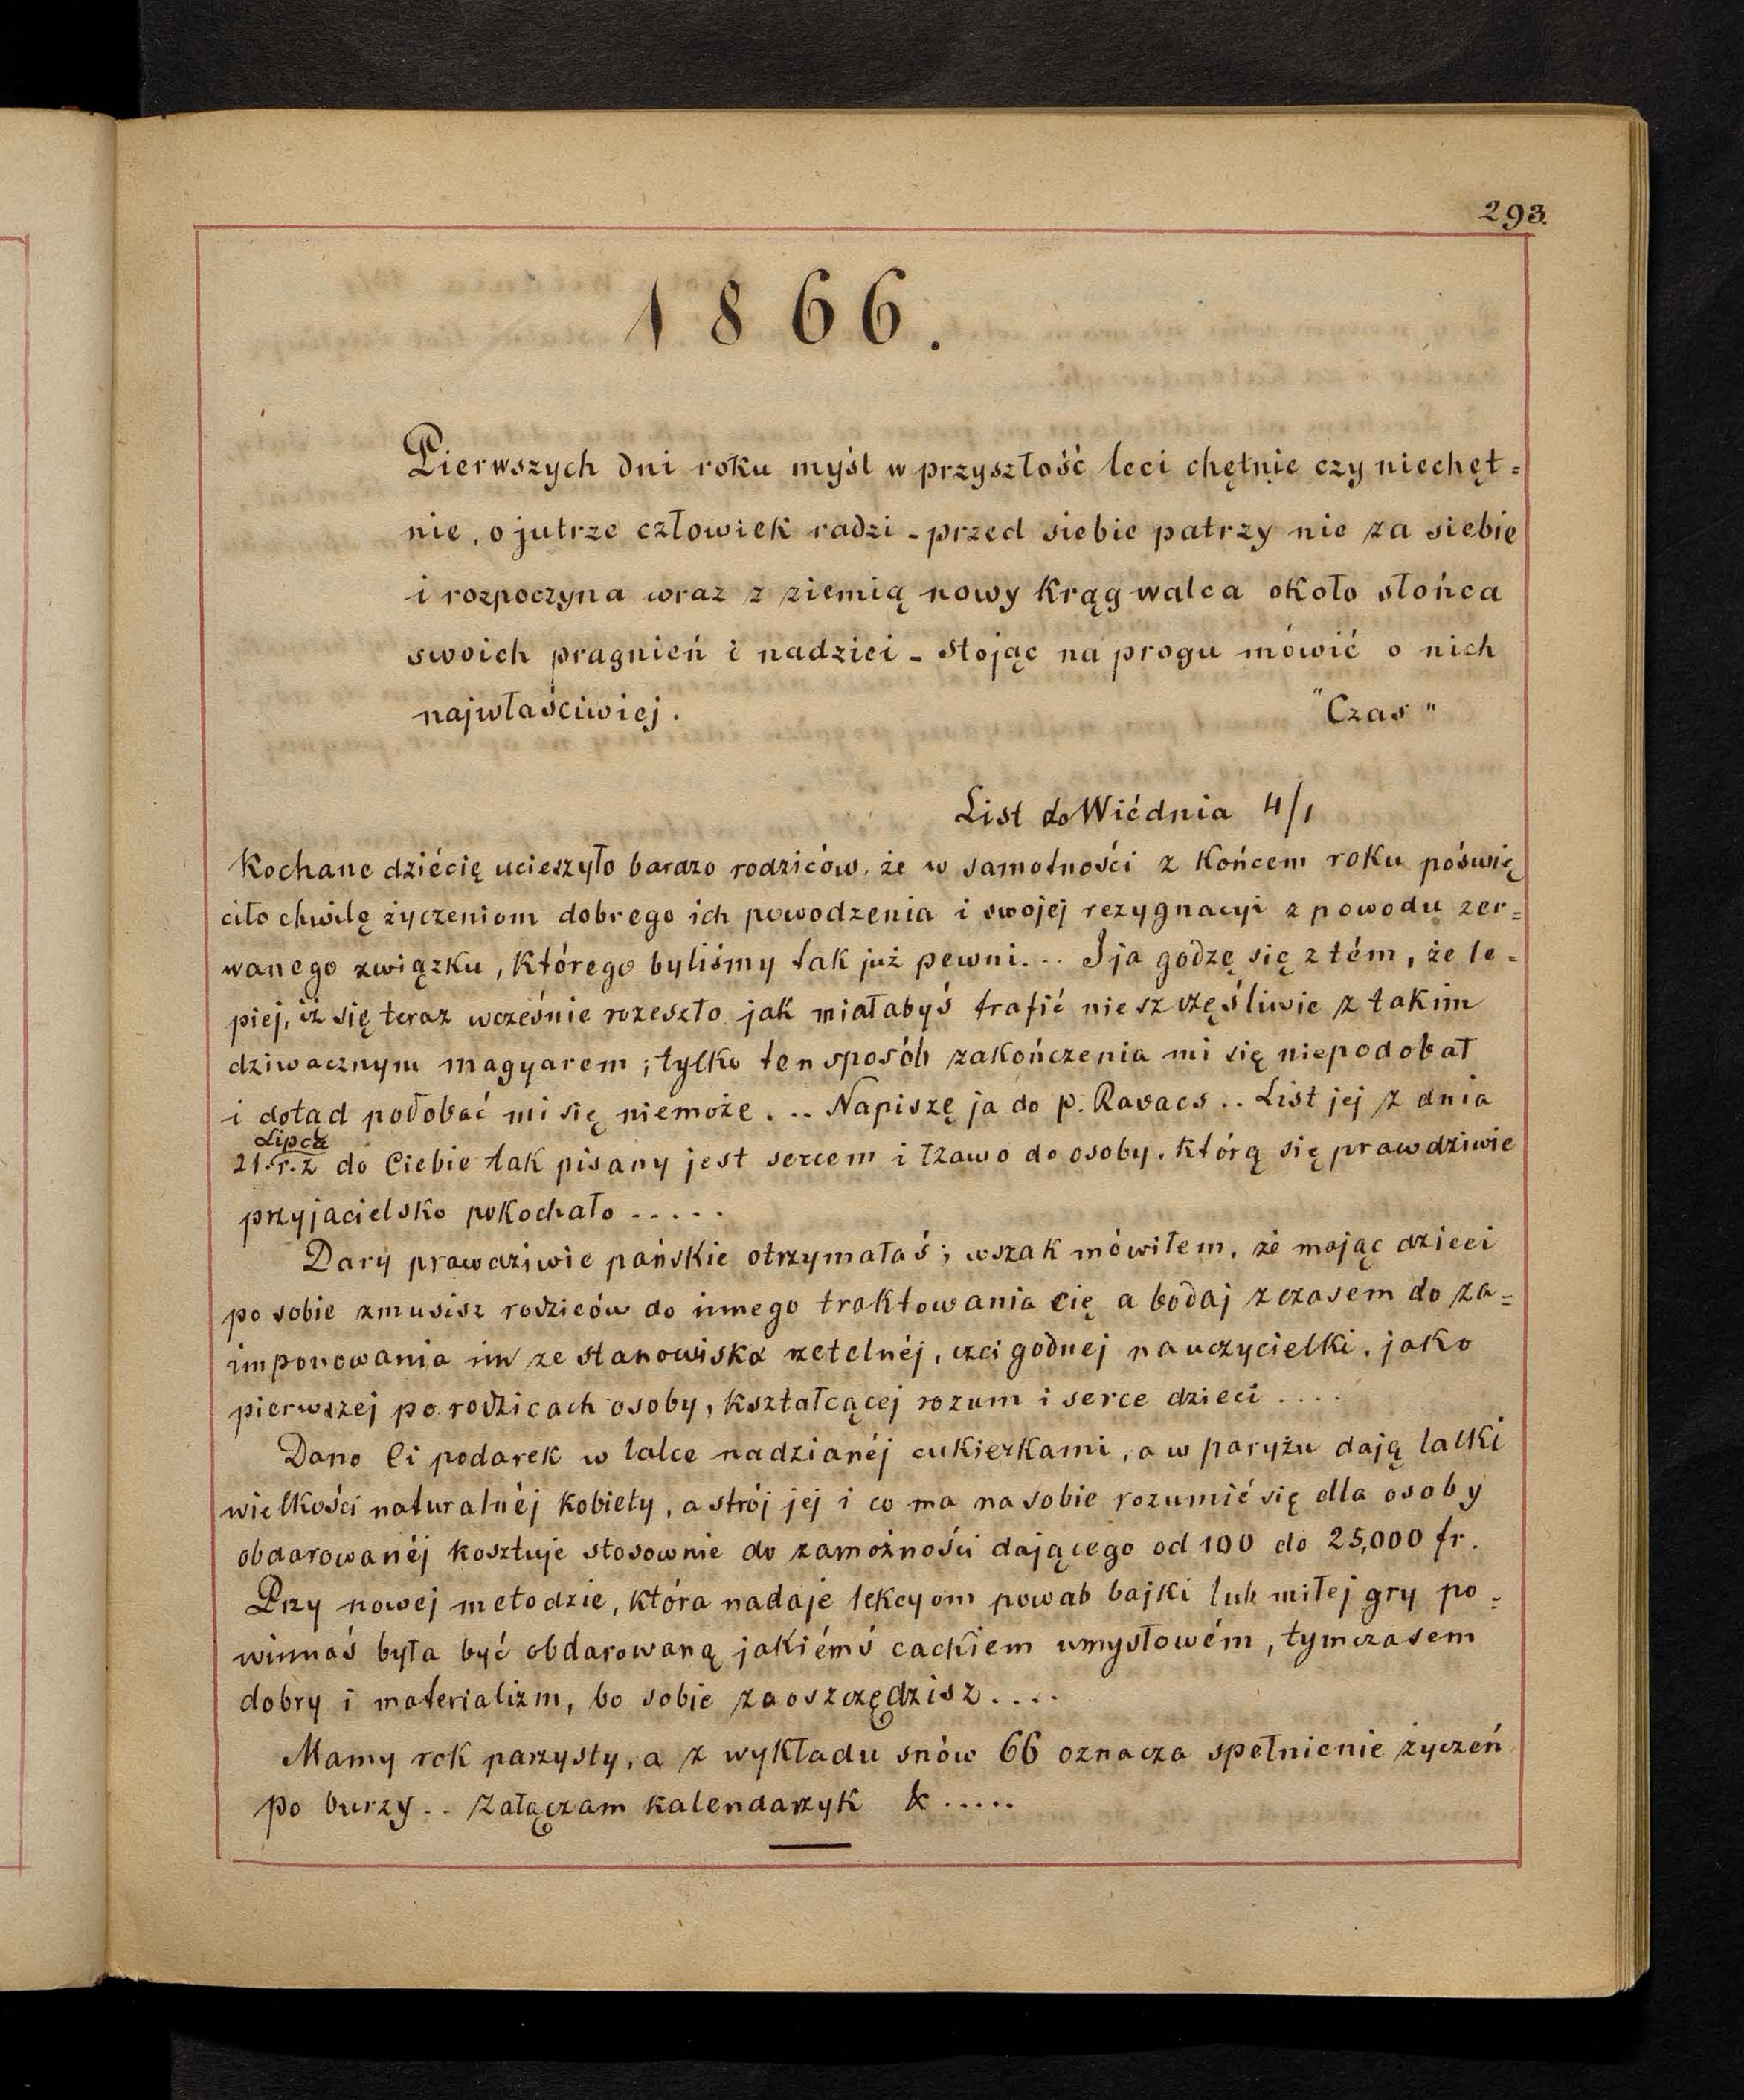 293.
1866.
Pierwszych dni roku myśl w przyszłość leci chętnie czy niechęt=
nie, o jutrze człowiek radzi - przed siebie patrzy nie za siebie
i rozpoczyna wraz z ziemią nowy krąg walca około słońca
swoich pragnień i nadziei - stojąc na progu mówić o nich
najwłaściwiej. "Czas"
List do Wiédnia 4/1
Kochane dziécię ucieszyło bardzo rodziców, że w samotności z końcem roku póświę
ciło chwilę życzeniom dobrego ich powodzenia i swojej rezygnacyi z powodu zer=
wanego związku, którego byliśmy tak już pewni... I ja godzę się z tém, że le=
piej, iż się teraz wcześnie rozeszło jak miałabyś trafić nieszczęśliwie z takim
dziwacznym magyarem; tylko ten sposób zakończenia mi się niepodobał
i dotąd podobać mi się niemoże... Napiszę ja do p. Ravacs.. List jej z dnia
Lipca
21. r. z do Ciebie tak pisany jest sercem i łzawo do osoby, którą się prawdziwie
przyjacielsko pokochało .....
Dary prawdziwie pańskie otrzymałaś; wszak mówiłem, że mając dzieci
po sobie zmusisz rodziców do innego traktowania cię a bodaj z czasem do za=
imponowania im ze stanowiska rzetelnéj, czci godnej nauczycielki, jako
pierwszej po rodzicach osoby, kształcącej rozum i serce dzieci ....
Dano Ci podarek w lalce nadzianéj cukierkami, a w paryżu dają lalki
wielkości naturalnéj kobiety, a strój jej i co ma na sobie rozumié się dla osoby
obdarowanéj kosztuje stosownie do zamożności dającego od 100 do 25,000 fr.
Przy nowej metodzie, która nadaje lekcyom powab bajki lub miłej gry po=
winnaś była być obdarowaną jakiémś cackiem umysłowém, tymczasem
dobry i materializm, bo sobie zaoszczędzisz....
Mamy rok parzysty, a z wykładu snów 66 oznacza spełnienie życzeń
po burzy.. Załączam kalendarzyk & .....